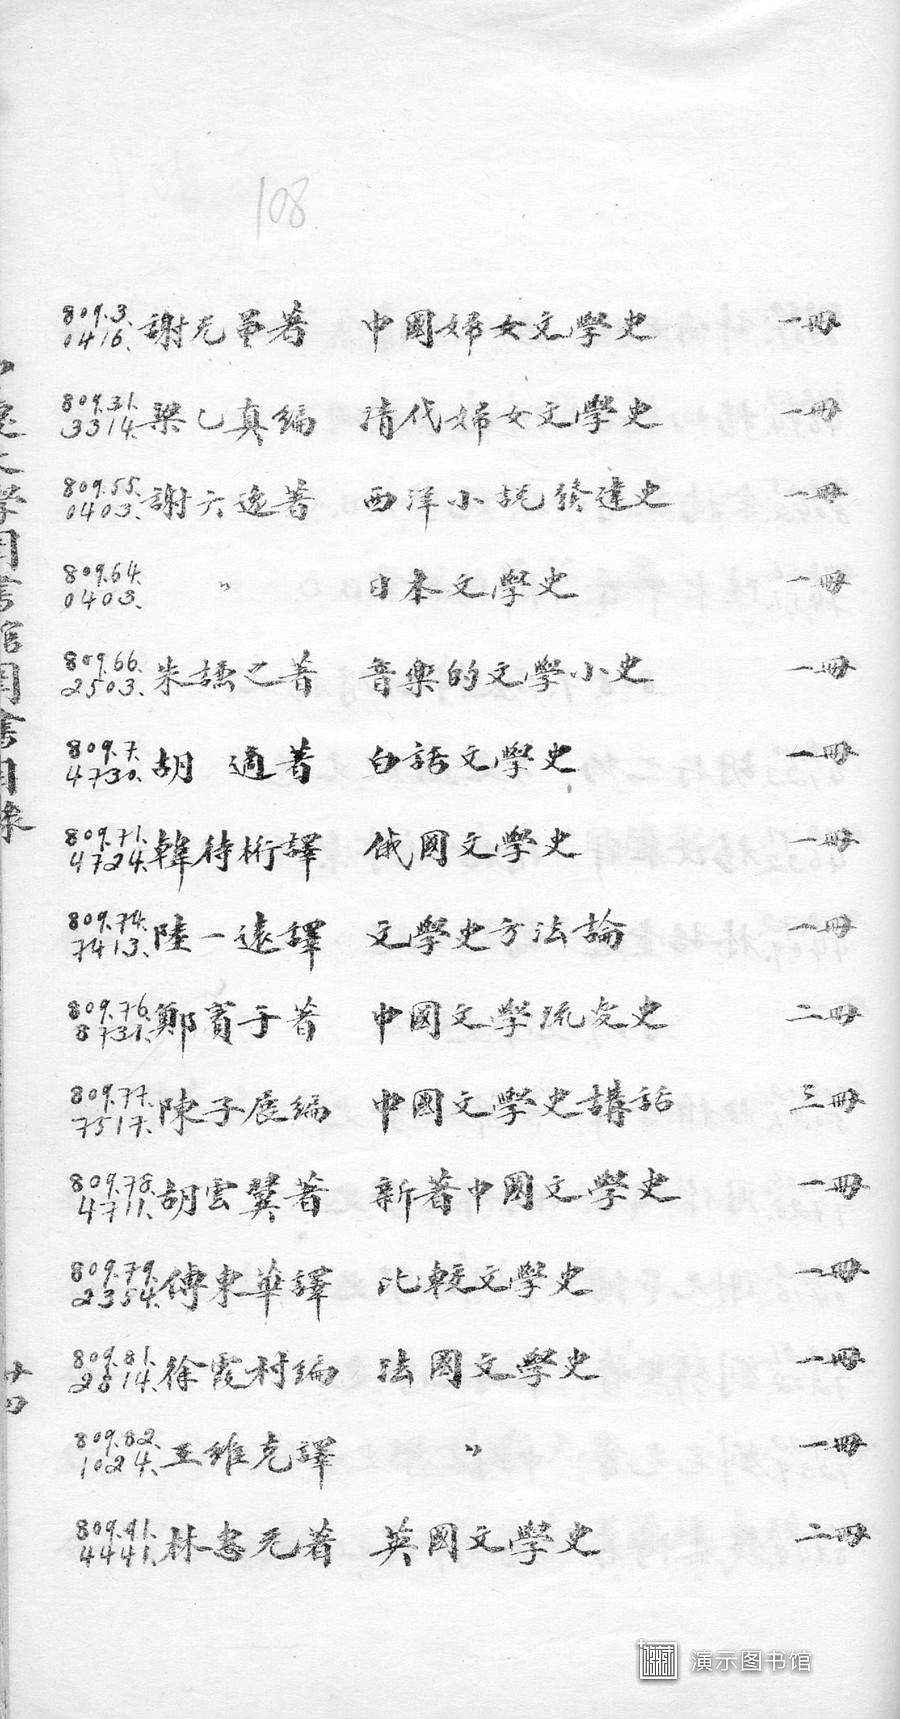 108
809.3. 0416. 謝无量著 中國婦女文學史 一冊
809.31. 3314. 梁乙真編 清代婦女文學史 一冊
809.55. 0403. 謝六逸著 西洋小說發達史 一冊
809.64. 0403. 〃 日本文學史 一冊
809.66. 2503. 朱謙之著 音樂的文學小史 一冊
809.7. 4730. 胡適著 白話文學史 一冊
809.71. 4724. 韓侍桁譯 俄國文學史 一冊
809.74. 7413. 陸一遠譯 文學史方法論 一冊
809.76. 8731. 鄭賓于著 中國文學流变史 二冊
809.77. 7517. 陳子展編 中國文學史講話 三冊
809.78. 4711. 胡雲翼著 新著中國文學史 一冊
809.79. 2354. 傅東華譯 比較文學史 一冊
809.81. 2814. 徐霞村編 法國文學史 一冊
809.82. 1024. 王維克譯 〃 一冊
809.91. 4441. 林惠元著 英國文學史 二冊
學圖書館圖書目錄
廿四
演示图书馆